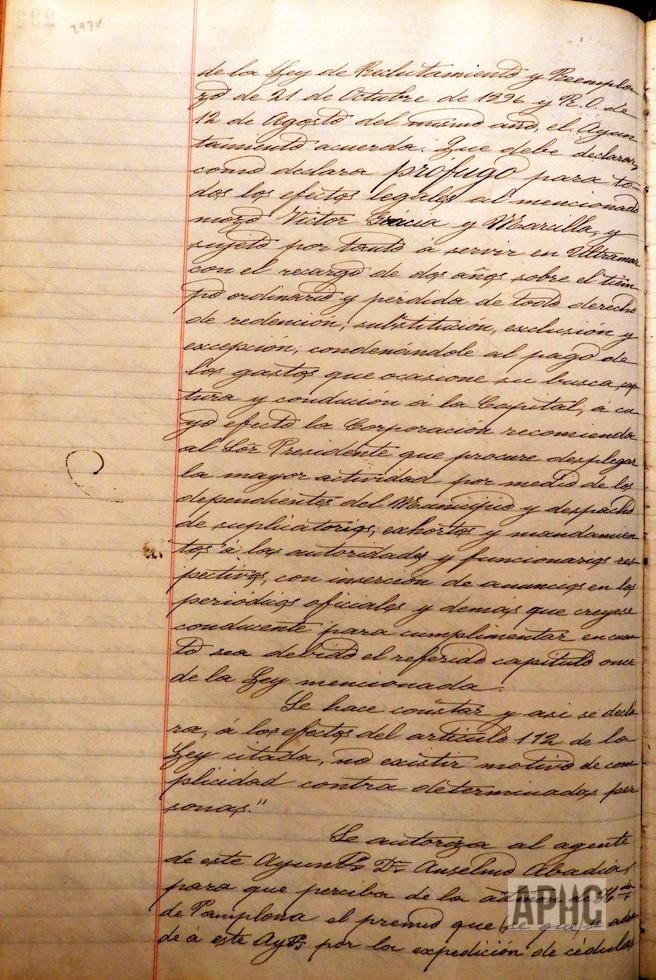 293v
de la Ley de Reclutamiento y Reempla
zo de 21 de Octubre de 1896 y R. O. de
12 de Agosto del mismo año, el Ayun
tamiento acuerda: Que debe declarar,
como declara prófugo para to-
dos los efectos legales al mencionado
mozo Victor Gracia y Marcilla, y
sujeto por tanto á servir en Ultramar
con el recargo de dos años sobre el tiem
po ordinario y pérdida de todo derecho
de redención, substitución, exclusión y
excepción; condenándole al pago de
los gastos que ocasione su busca, cap
tura y conducion á la Capital, á cu
yo efecto la Corporación recomienda
al Sor Presidente que procure desplegar
la mayor actividad por medio de los
dependientes del Municipio y despacho
de suplicatorios, exhortos y mandamien
tos á las autoridades y funcionarios res
pectivos, con inserción de anuncios en los
periódicos oficiales y demás que creyese
conducente para cumplimentar en cuan
to sea debido el referido capitulo once
de la Ley mencionada.
Se hace constar y asi se decla
ra, á los efectos del articulo 112 de la
Ley citada, no existir motivo de com
plicidad contra determinadas per
sonas."
Se autoriza al agente
de este Ayuntº Dn Anselmo Abadias
para que perciba de la admon de Hda
de Pamplona el premio que se adeu
de á este Aytº por la expedición de cédulas
APHC